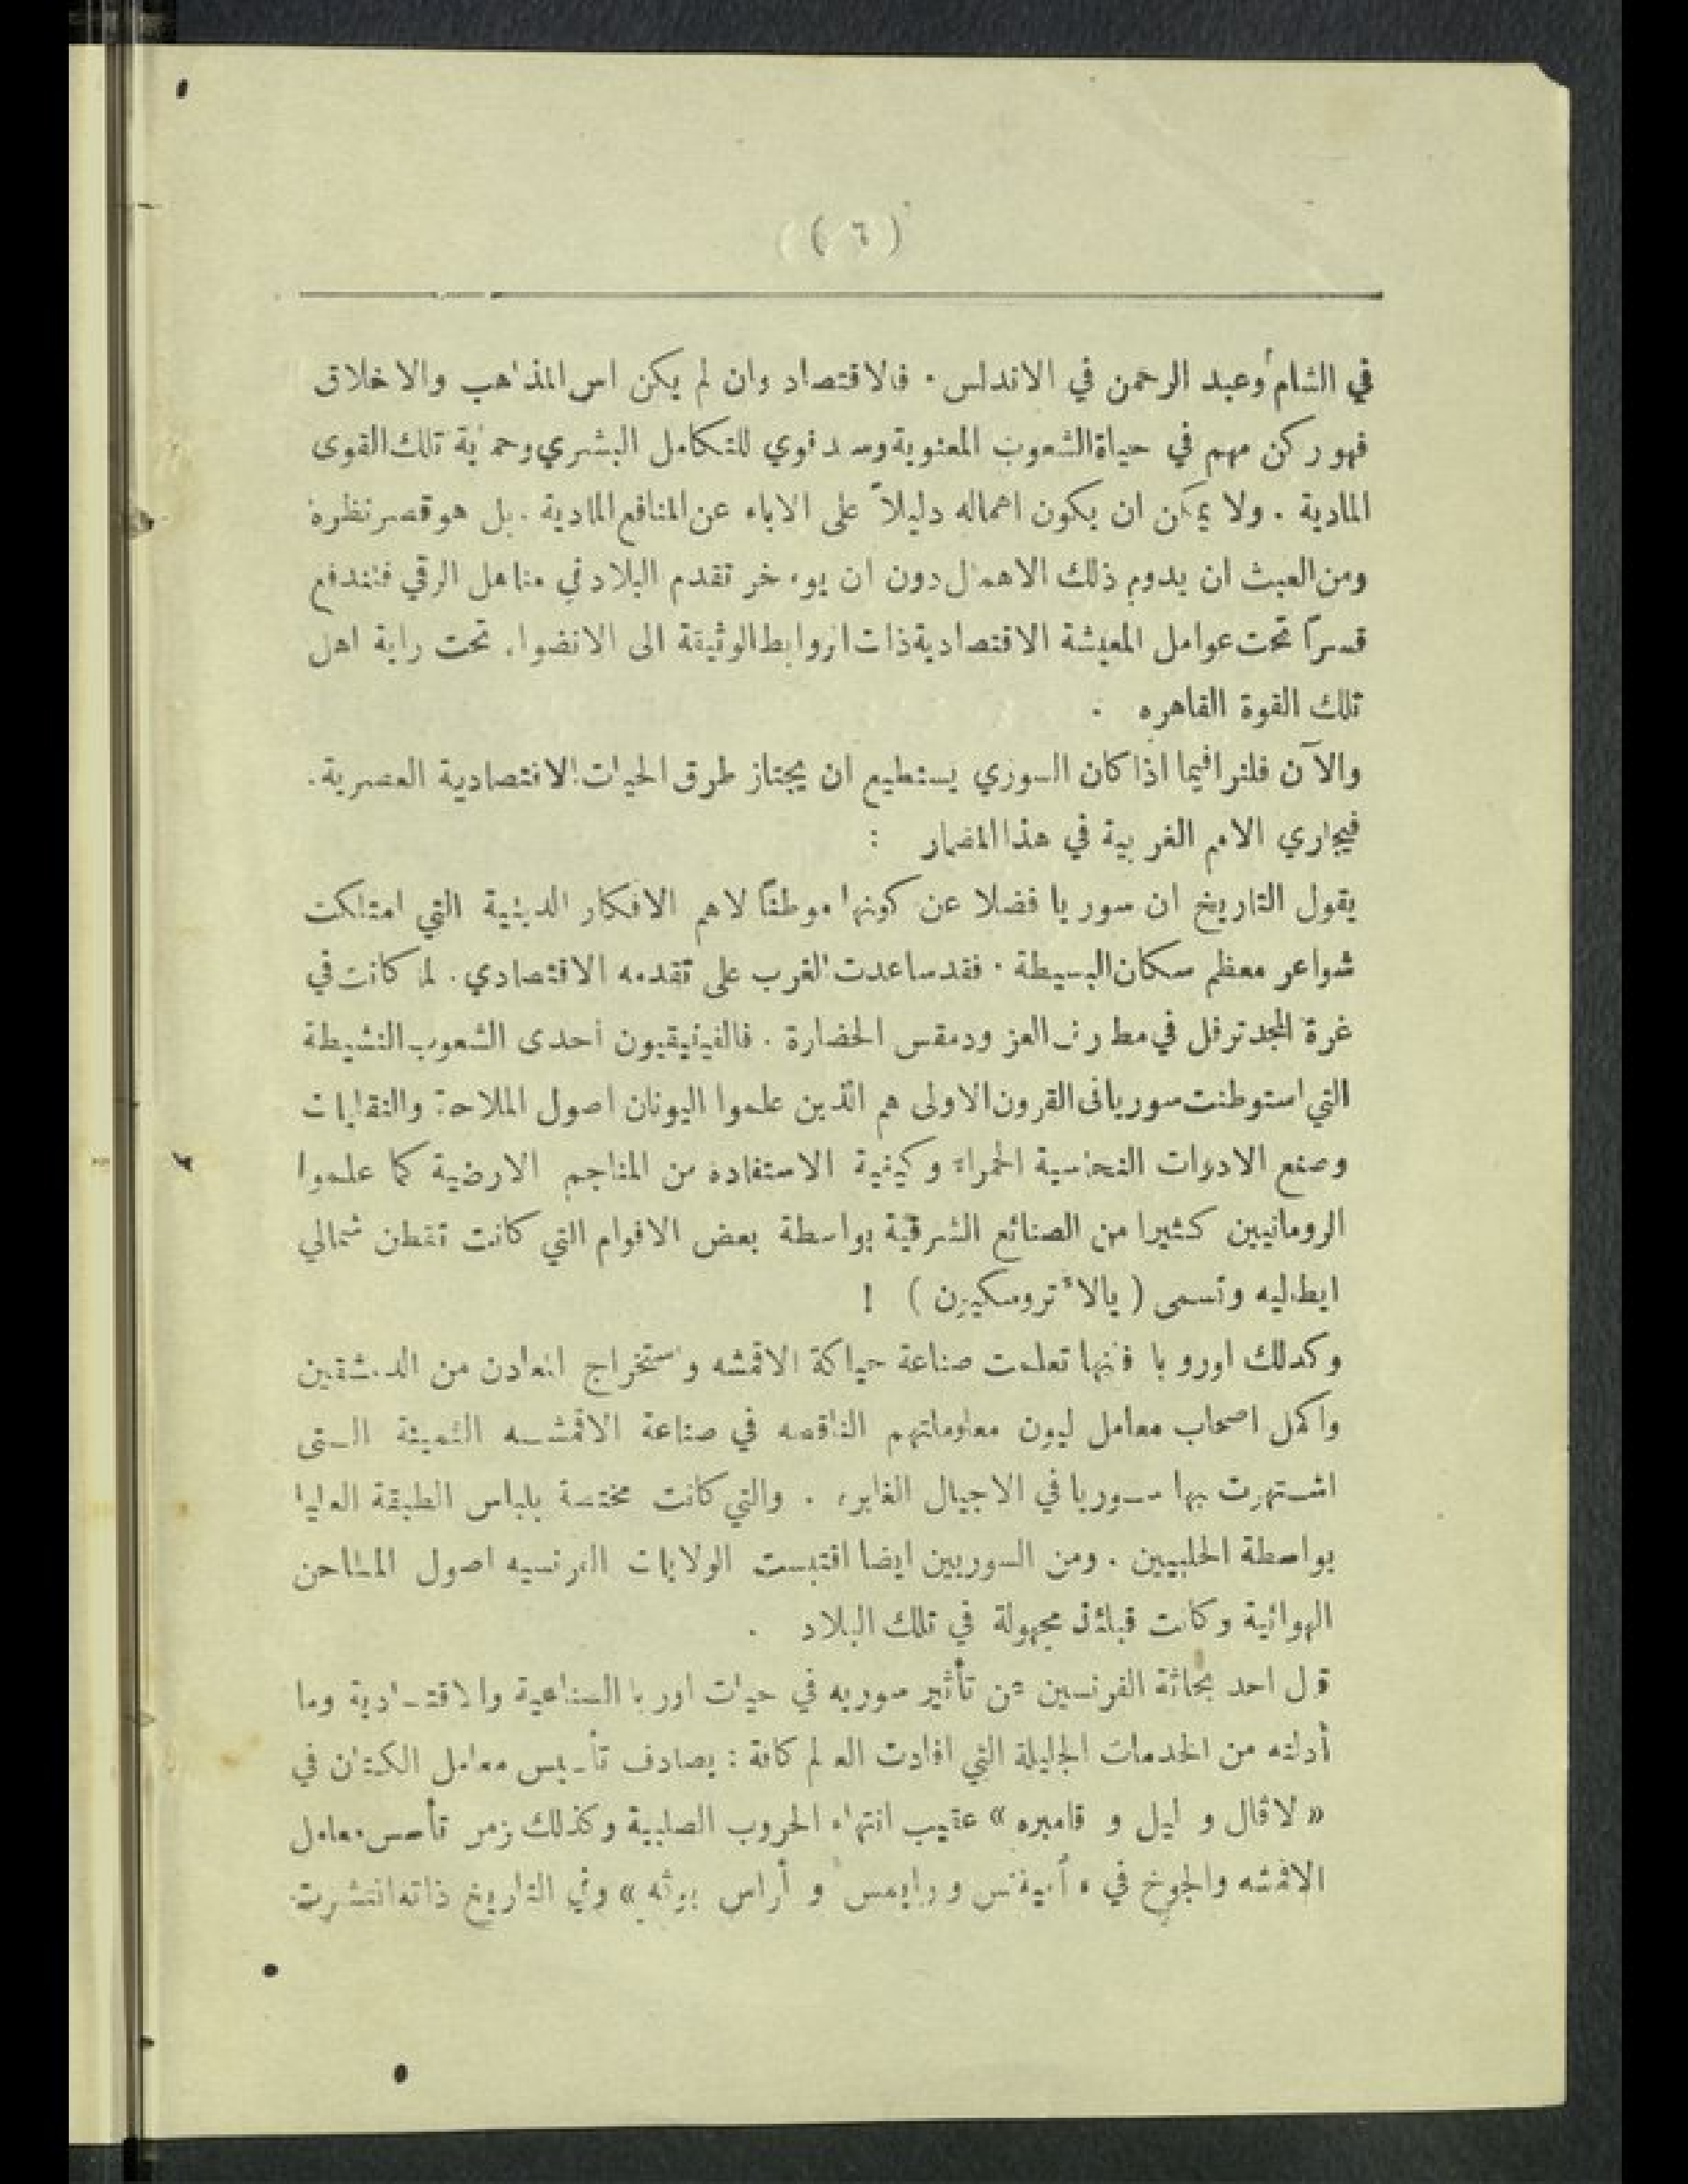 ( ٦ )
في الشام وعبد الرحمن في الاندلس . فالاقتصاد وان لم يكن اس المذاهب والاخلاق
فهو ركن مهم في حياة الشعوب المعنوية وسند قوي للتكامل البشري وحماية تلك القوى
المادية . ولا يمكن ان يكون اهماله دليلاً على الاباء عن المنافع المادية . بل هو قصر نظره
ومن العبث ان يدوم ذلك الاهمال دون ان يوءخر تقدم البلاد في مناهل الرقي فتندفع
قسراً تحت عوامل المعيشة الاقتصادية ذات الروابط الوثيقة الى الانضواء تحت راية اهل
تلك القوة القاهره .
والآن فلنر افيما اذا كان السوري يستطيع ان يجتاز طرق الحيات الاقتصادية العصرية .
فيجاري الامم الغربية في هذا المضمار :
يقول التاريخ ان سوريا فضلا عن كونها موطناً لاهم الافكار الدينية التي امتلكت
شواعر معظم سكان البسيطة . فقد ساعدت الغرب على تقدمه الاقتصادي . لما كانت في
غرة المجد ترفل في مطارف العز ودمقس الحضارة . فالفينيقيون احدى الشعوب النشيطة
التي استوطنت سوريا فى القرون الاولى هم الذين علموا اليونان اصول الملاحة والنقابات
وصنع الادوات النحاسية الحمراء وكيفية الاستفادة من المناجم الارضية كما علموا
الرومانيين كثيرا من الصنائع الشرقية بواسطة بعض الاقوام التي كانت تقطن شمالي
ايطاليه وتسمى ( بالاٴتروسكيون ) !
وكذلك اوروبا فانها تعلمت صناعة حياكة الاقمشه واستخراج المعادن من الدمشقيين
واكمل اصحاب معامل ليون معلوماتهم الناقصه في صناعة الاقمشـه الثمينة الـتى
اشـتهرت بها سـوريا في الاجيال الغابره . والتي كانت مختصة بلباس الطبقة العليا
بواسطة الحلبيين . ومن السوريين ايضا اقتبست الولايات الفرنسيه اصول المطاحن
الهوائية وكانت قبلئذ مجهولة في تلك البلاد .
قال احد بحاثة الفرنسين عن تأثير سوريه في حيات اوربا الصناعية والاقتصادية وما
أدلته من الخدمات الجليلة التي افادت العالم كافة : يصادف تأسيس معامل الكتان في
« لافال و ليل و قامبره » عقيب انتهاء الحروب الصليبية وكذلك زمن تأسس معامل
الاقمشه والجوخ في « و رايمس و أراس » وفي التاريخ ذاته انتشرت